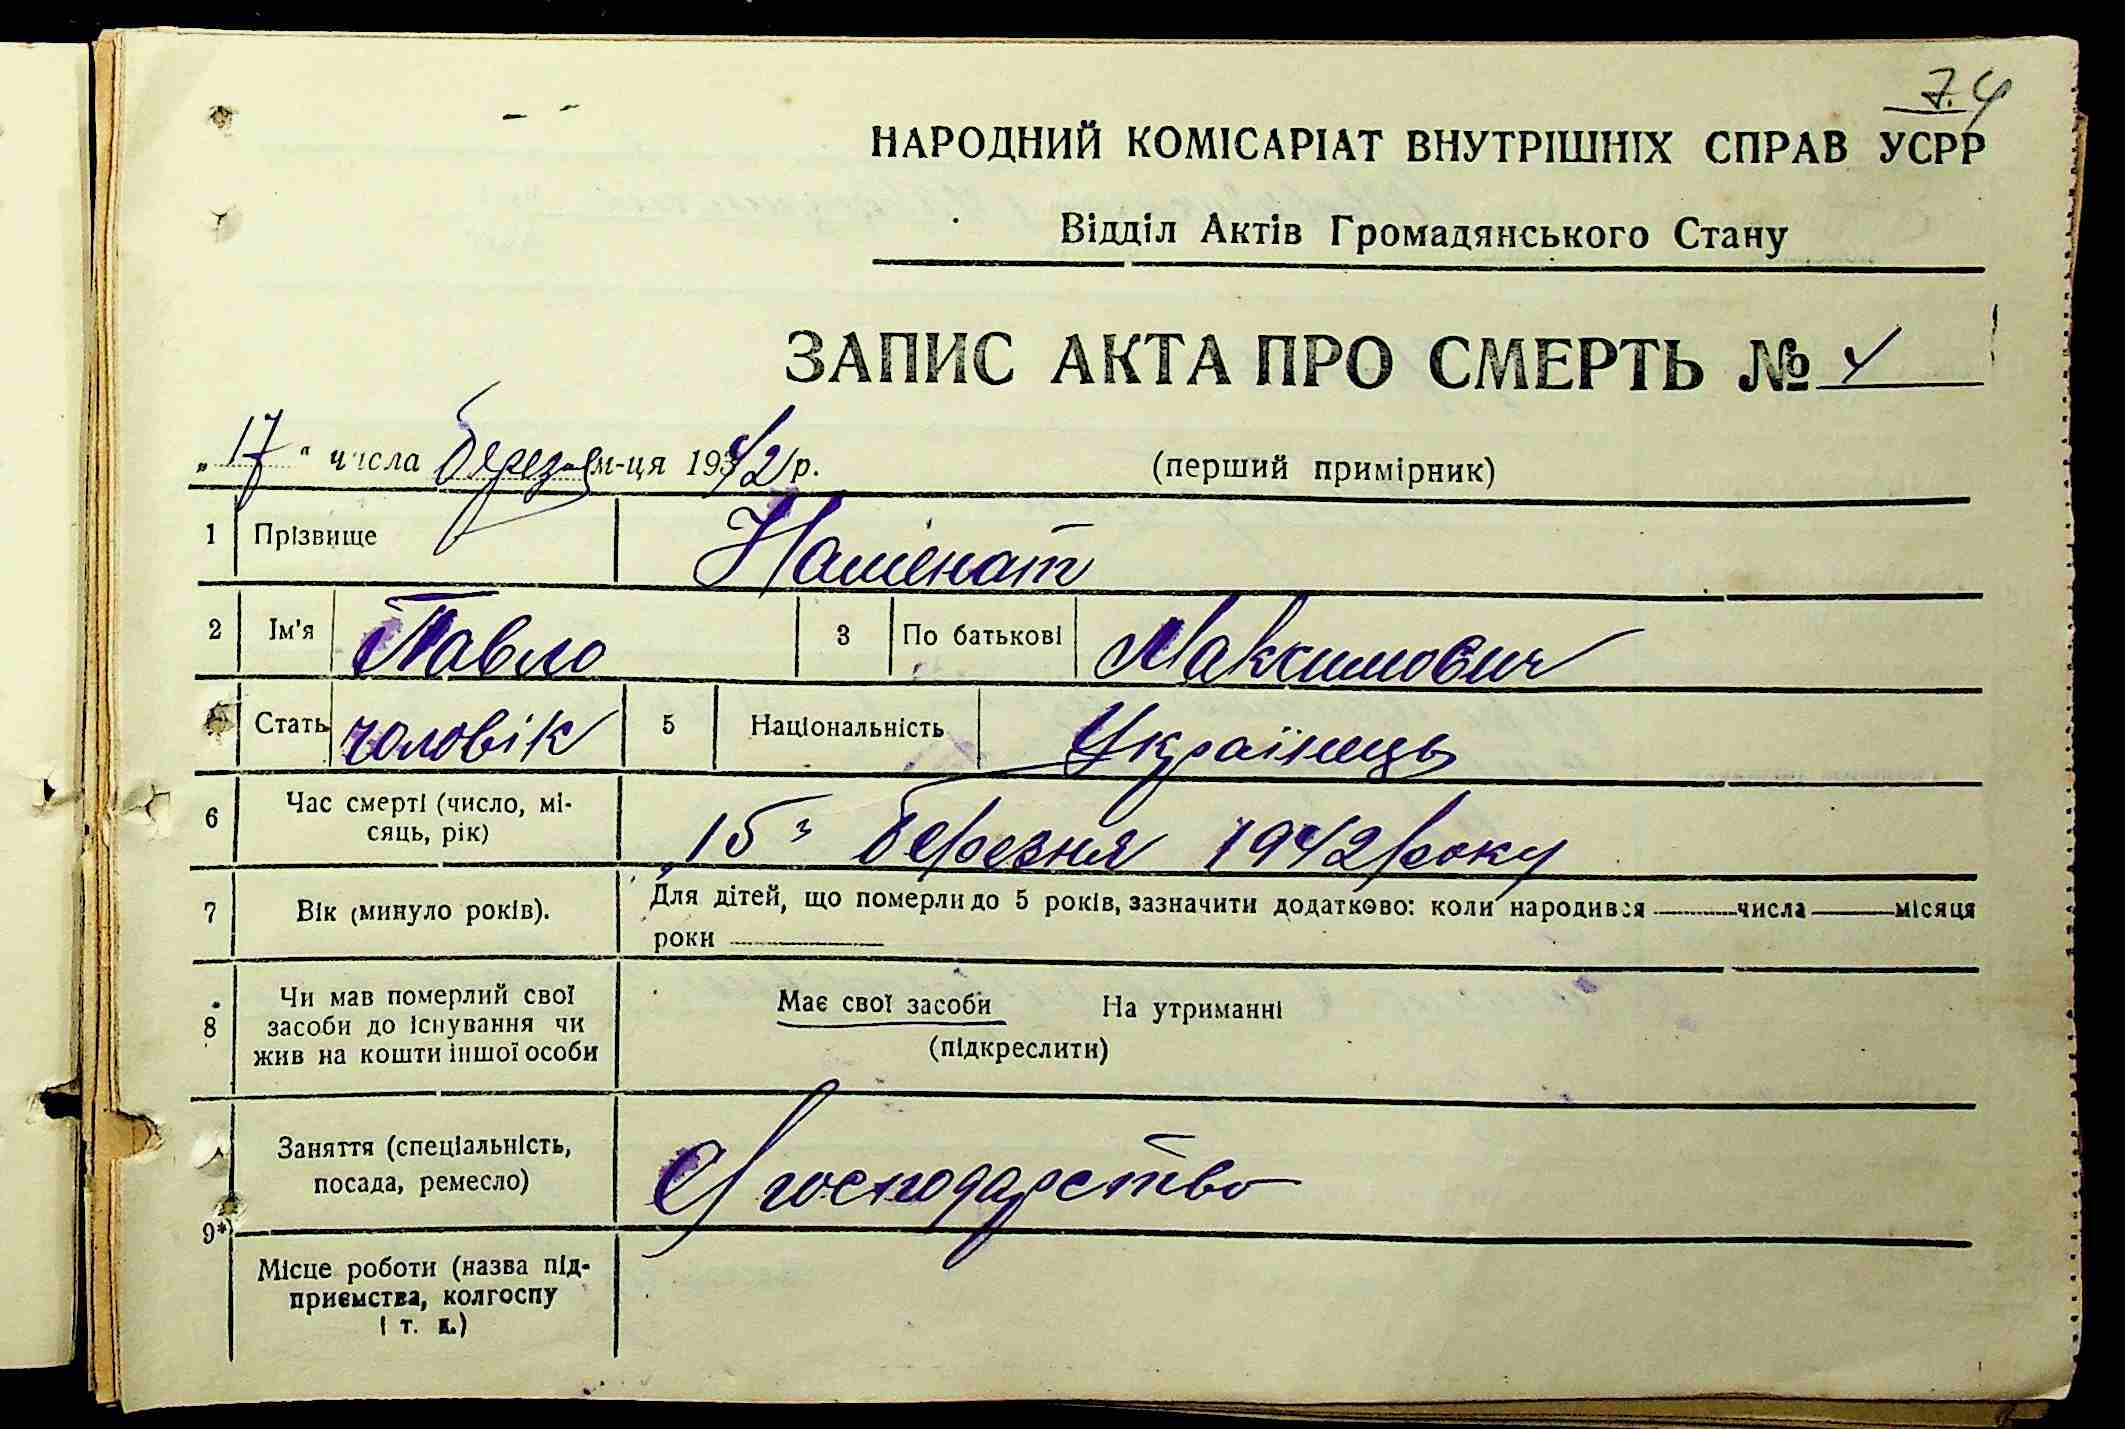 7.4
НАРОДНИЙ КОМІСАРІАТ ВНУТРІШНІХ СПРАВ УСРР
Відділ Актів Громадянського Стану
ЗАПИС АКТА ПРО СМЕРТЬ № 4
„17“ числа березня м-ця 1942 р. (перший примірник)
1 Прізвище
2 Ім'я Павло 3 По батькові Максимович
Стать чоловік 5 Національність Українець
6 Час смерті (число, мі-
сяць, рік) 15 березня 1942 року
7 Вік (минуло років). Для дітей, що померли до 5 років, зазначити додатково: коли народився числа місяця
роки
8 Чи мав померлий свої
засоби до існування чи
жив на кошти іншої особи
Має свої засоби На утриманні
(підкреслити)
9*) Заняття (спеціальність,
посада, ремесло) господарство
Місце роботи (назва під-
приємства, колгоспу
і т. д.)